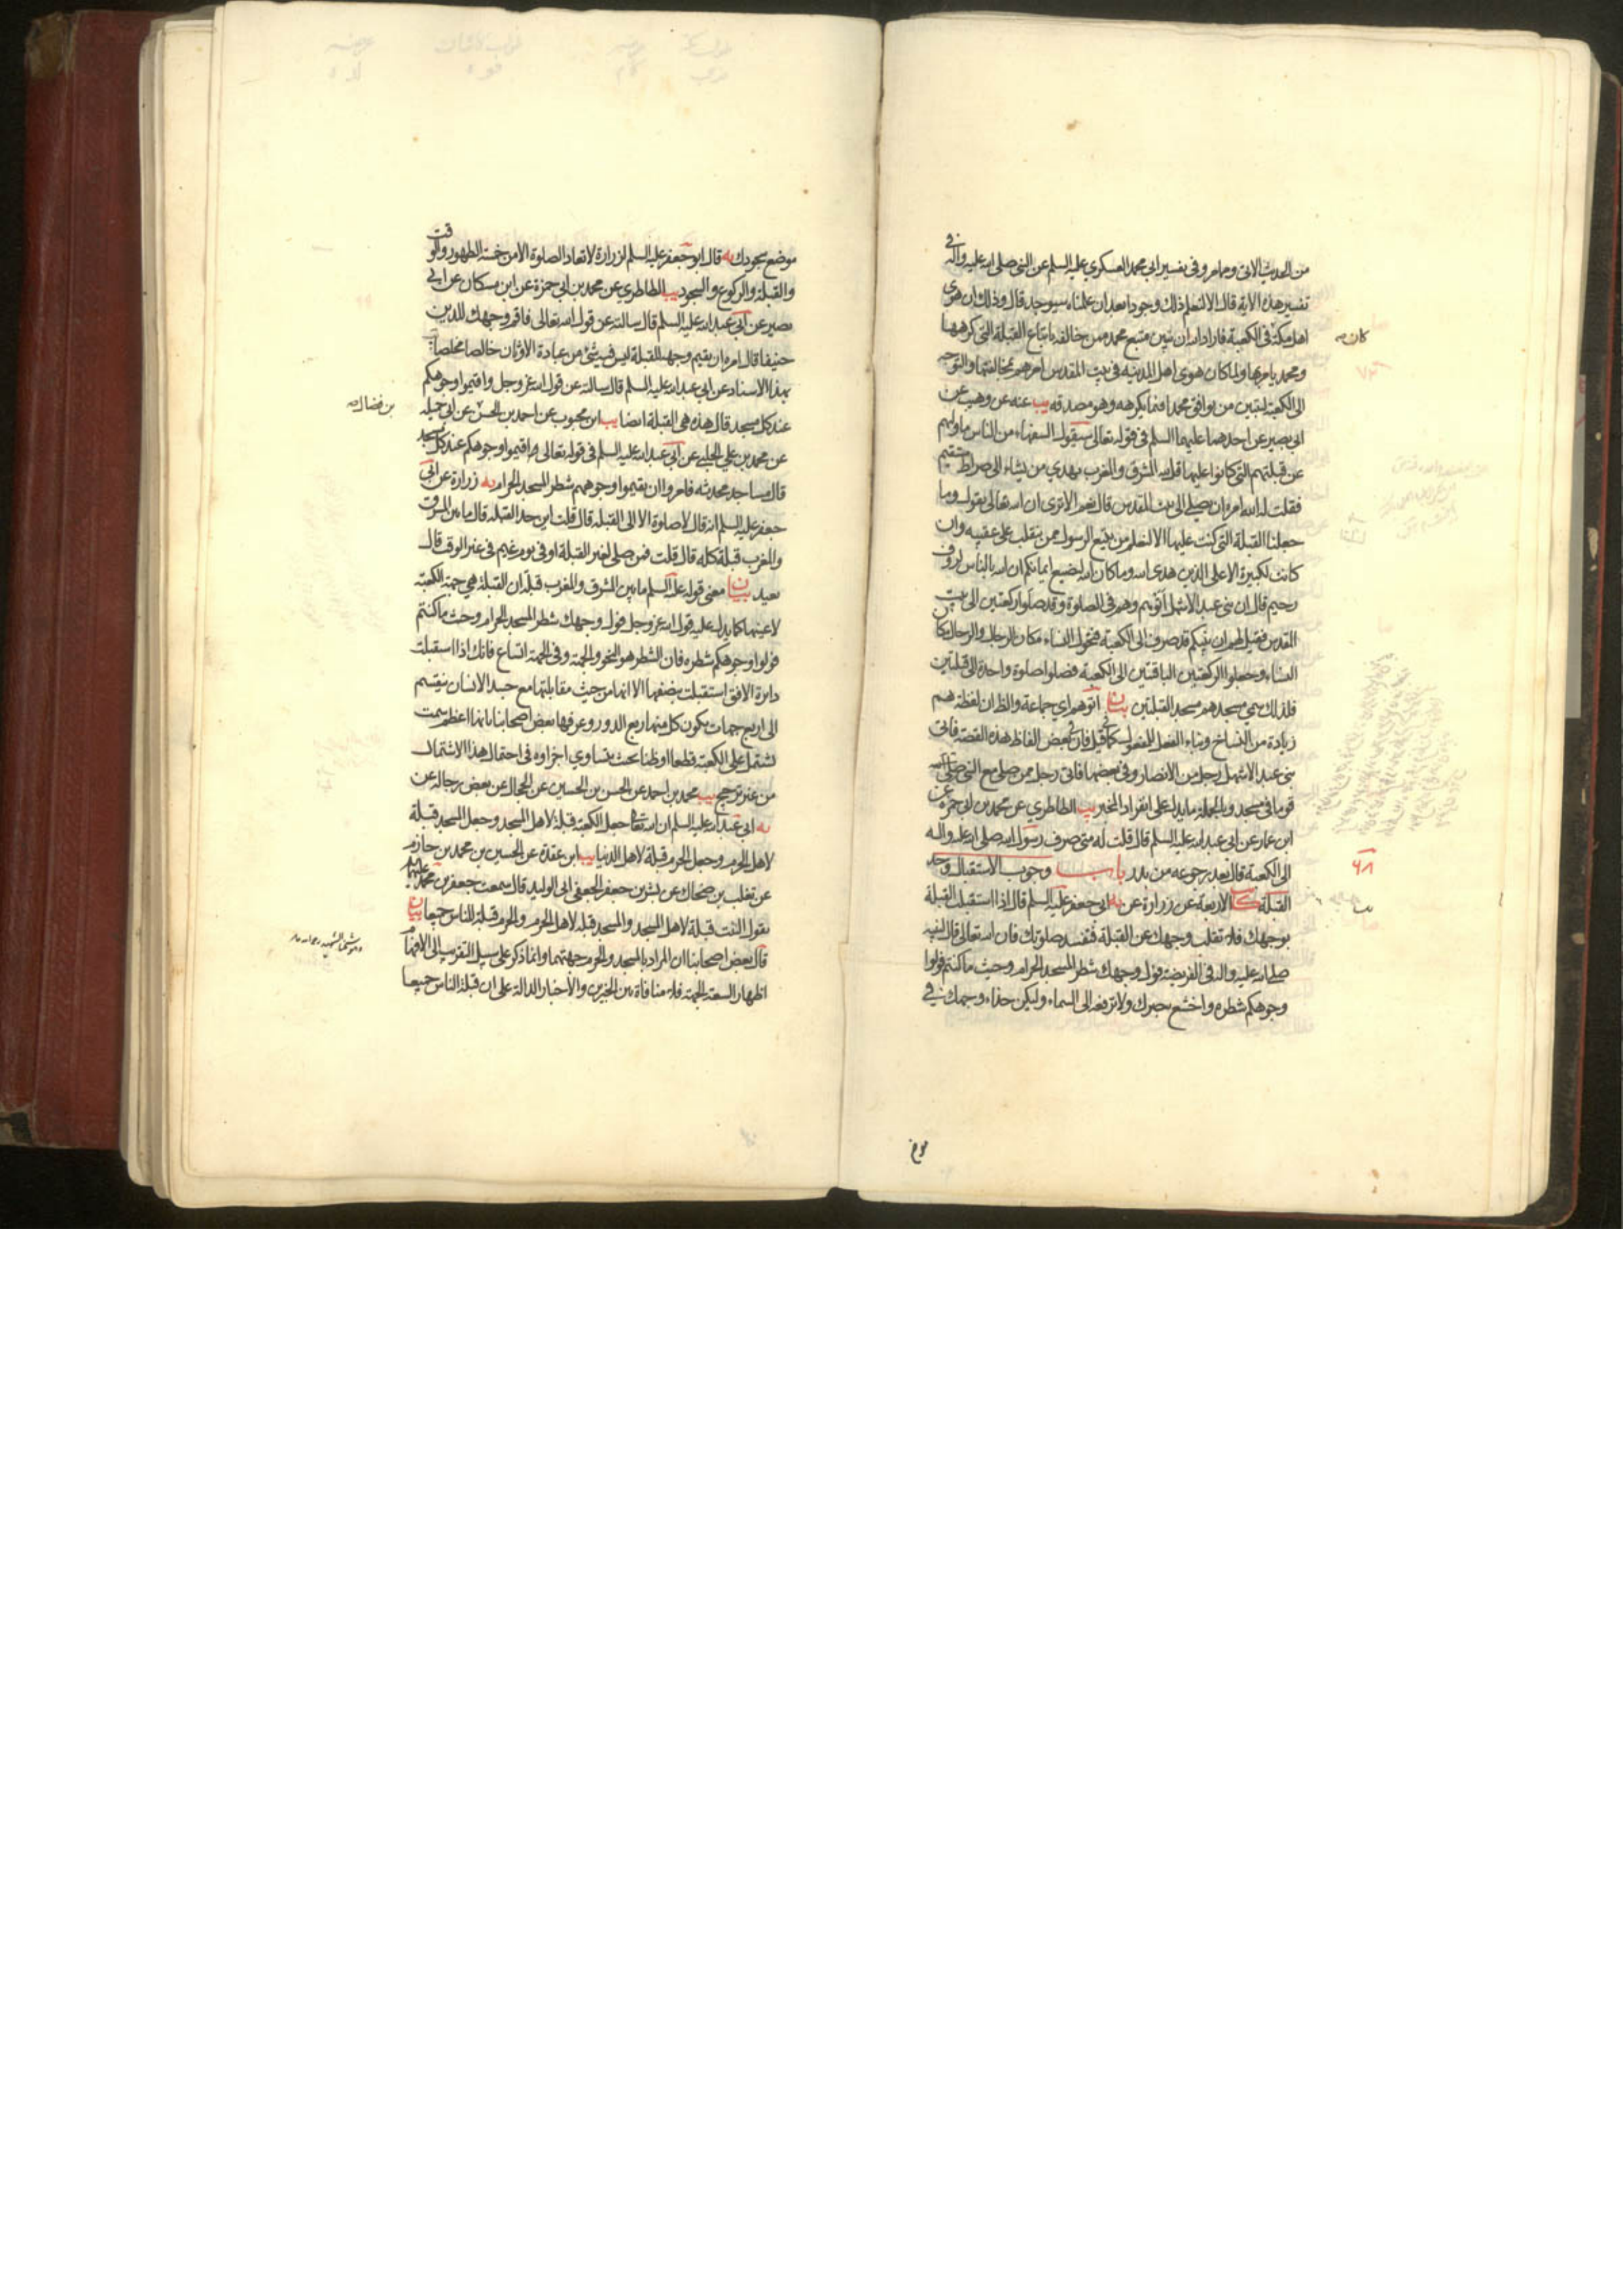 من الحديث الاتى ومما مر وفى تفسير ابى محمد العسكري عليه السلم عن النبى صلى الله عليه واله فى
تفسير هذه الاية قال الا لنعلم ذلك وجودا بعد ان علمناه سيوجد قال وذلك ان هوى
اهل مكة فى الكعبة فاراد الله ان يبين متبع محمد ممن خالفه باتباع القبلة التى كرهها
كان
ومحمد يامر بها ولما كان هوى اهل المدينة فى بيت المقدس امرهم بمخالفتها والتوجه
الى الكعبة ليتبين من يوافق محمدا فيما يكرهه وهو مصدقه يب عنه عن وهيب عن
ابى بصير عن احدهما عليهما السلم فى قوله تعالى سيقول السفهاء من الناس ما وليهم
عن قبلتهم التى كانوا عليها قل لله المشرق والمغرب يهدي من يشاء الى صراط مستقيم
فقلت له الله امره ان يصلي الى بيت المقدس قال نعم الا ترى ان الله تعالى يقول وما
جعلنا القبلة التى كنت عليها الا لنعلم من يتبع الرسول ممن ينقلب على عقبيه وان
كانت لكبيرة الا على الذين هدى الله وما كان الله ليضيع ايمانكم ان الله بالناس لرؤف
رحيم قال ان بنى عبد الاشهل اتوهم وهم فى الصلوة وقد صلوا ركعتين الى بيت
المقدس فقيل لهم ان نبيكم قد صرف الى الكعبة فتحول النساء مكان الرجال والرجال مكان
النساء وجعلوا الركعتين الباقيتين الى الكعبة فصلوا صلوة واحدة الى قبلتين
فلذلك سمي مسجدهم مسجد القبلتين بيان اتوهم اي جماعة والظاان لفظة هم
زيادة من النساخ وبناء الفعل للمفعول كما فى قيل فان فى بعض الفاظ هذه القصة فاتى
بنى عبد الاشهل رجل من الانصار وفى بعضها فاتى رجل ممن صلى مع النبى صلى الله
قوما فى مسجد وبالجملة ما يدل على انفراد المخبر يب الطاطري عن محمد بن ابى حمزة عن
ابن عمار عن ابى عبد الله عليه السلم قال قلت له متى صرف رسول الله صلى الله عليه واله
الى الكعبة قال بعد رجوعه من بدر باب وجوب الاستقبال وحد
٤٨
القبلة كا الاربعة عن زرارة عن يه ابى جعفر عليه السلم قال اذا استقبلت القبلة
بوجهك فلا تقلب وجهك عن القبلة فتفسد صلوتك فان الله تعالى قال لنبيه
صلى الله عليه واله فى الفريضة فول وجهك شطر المسجد الحرام وحيث ما كنتم فولوا
وجوهكم شطره واخشع ببصرك ولا ترفعه الى السماء وليكن حذاء وجهك فى
موضع سجودك يه قال ابو جعفر عليه السلم لزرارة لا تعاد الصلوة الا من خمسة الطهور والوقت
والقبلة والركوع والسجود يب الطاطري عن محمد بن ابي حمزة عن ابن مسكان عن ابى
بصير عن ابي عبد الله عليه السلم قال سالته عن قول الله تعالى فاقم وجهك للدين
حنيفا قال امره ان يقيم وجهه للقبلة ليس فيه شئ من عبادة الاوثان خالصا مخلصا يب
بهذا الاسناد عن ابي عبد الله عليه السلم قال سالته عن قول الله عز وجل واقيموا وجوهكم
عند كل مسجد قال هذه هى القبلة ايضا يب ابن محبوب عن احمد بن الحسن عن ابى جميله
بن فضال
عن محمد بن علي الحلبي عن ابى عبد الله عليه السلم فى قوله تعالى واقيموا وجوهكم عند كل مسجد
قال مساجد محدثه فامروا ان يقيموا وجوههم شطر المسجد الحرام يه زرارة عن ابى
جعفر عليه السلم انه قال لا صلوة الا الى القبلة قال قلت اين حد القبلة قال ما بين المشرق
والمغرب قبلة كله قال قلت فمن صلى لغير القبلة او فى يوم غيم فى غير الوقت قال
يعيد بيان معنى قوله عليه السلم ما بين المشرق والمغرب قبلة ان القبلة هى جهة الكعبة
لا عينها كما يدل عليه قول الله عز وجل فول وجهك شطر المسجد الحرام وحيث ما كنتم
فولوا وجوهكم شطره فان الشطر هو النحو والجهة وفى الجهة اتساع فانك اذا استقبلت
دايرة الافق استقبلت نصفها الا انها من حيث مقابلتها مع جسد الانسان ينقسم
الى اربع جهات يكون كل منها ربع الدور وعرفها بعض اصحابنا بانها اعظم سمت
يشتمل على الكعبة قطعا او ظنا بحيث يتساوي اجزاوه فى احتمال هذا الاشتمال
من غير ترجيح يب محمد بن احمد عن الحسن بن الحسين عن الحجال عن بعض رجاله عن
يه ابى عبد الله عليه السلم ان الله تعالى جعل الكعبة قبلة لاهل المسجد وجعل المسجد قبلة
لاهل الحرم وجعل الحرم قبلة لاهل الدنيا يب ابن عقدة عن الحسين بن محمد بن حازم
عن تغلب بن ضحاك عن بشر بن جعفر الجعفى ابى الوليد قال سمعت جعفر بن محمد عليهما
يقول البيت قبلة لاهل المسجد والمسجد قبلة لاهل الحرم والحرم قبلة للناس جميعا بيان
قال بعض اصحابنا ان المراد بالمسجد والحرم جهتهما وانما ذكر على سبيل التقريب الى الافهام
اظهار السعة الجهة فلا منافاة بين الخبرين والاخبار الدالة على ان قبلة الناس جميعا